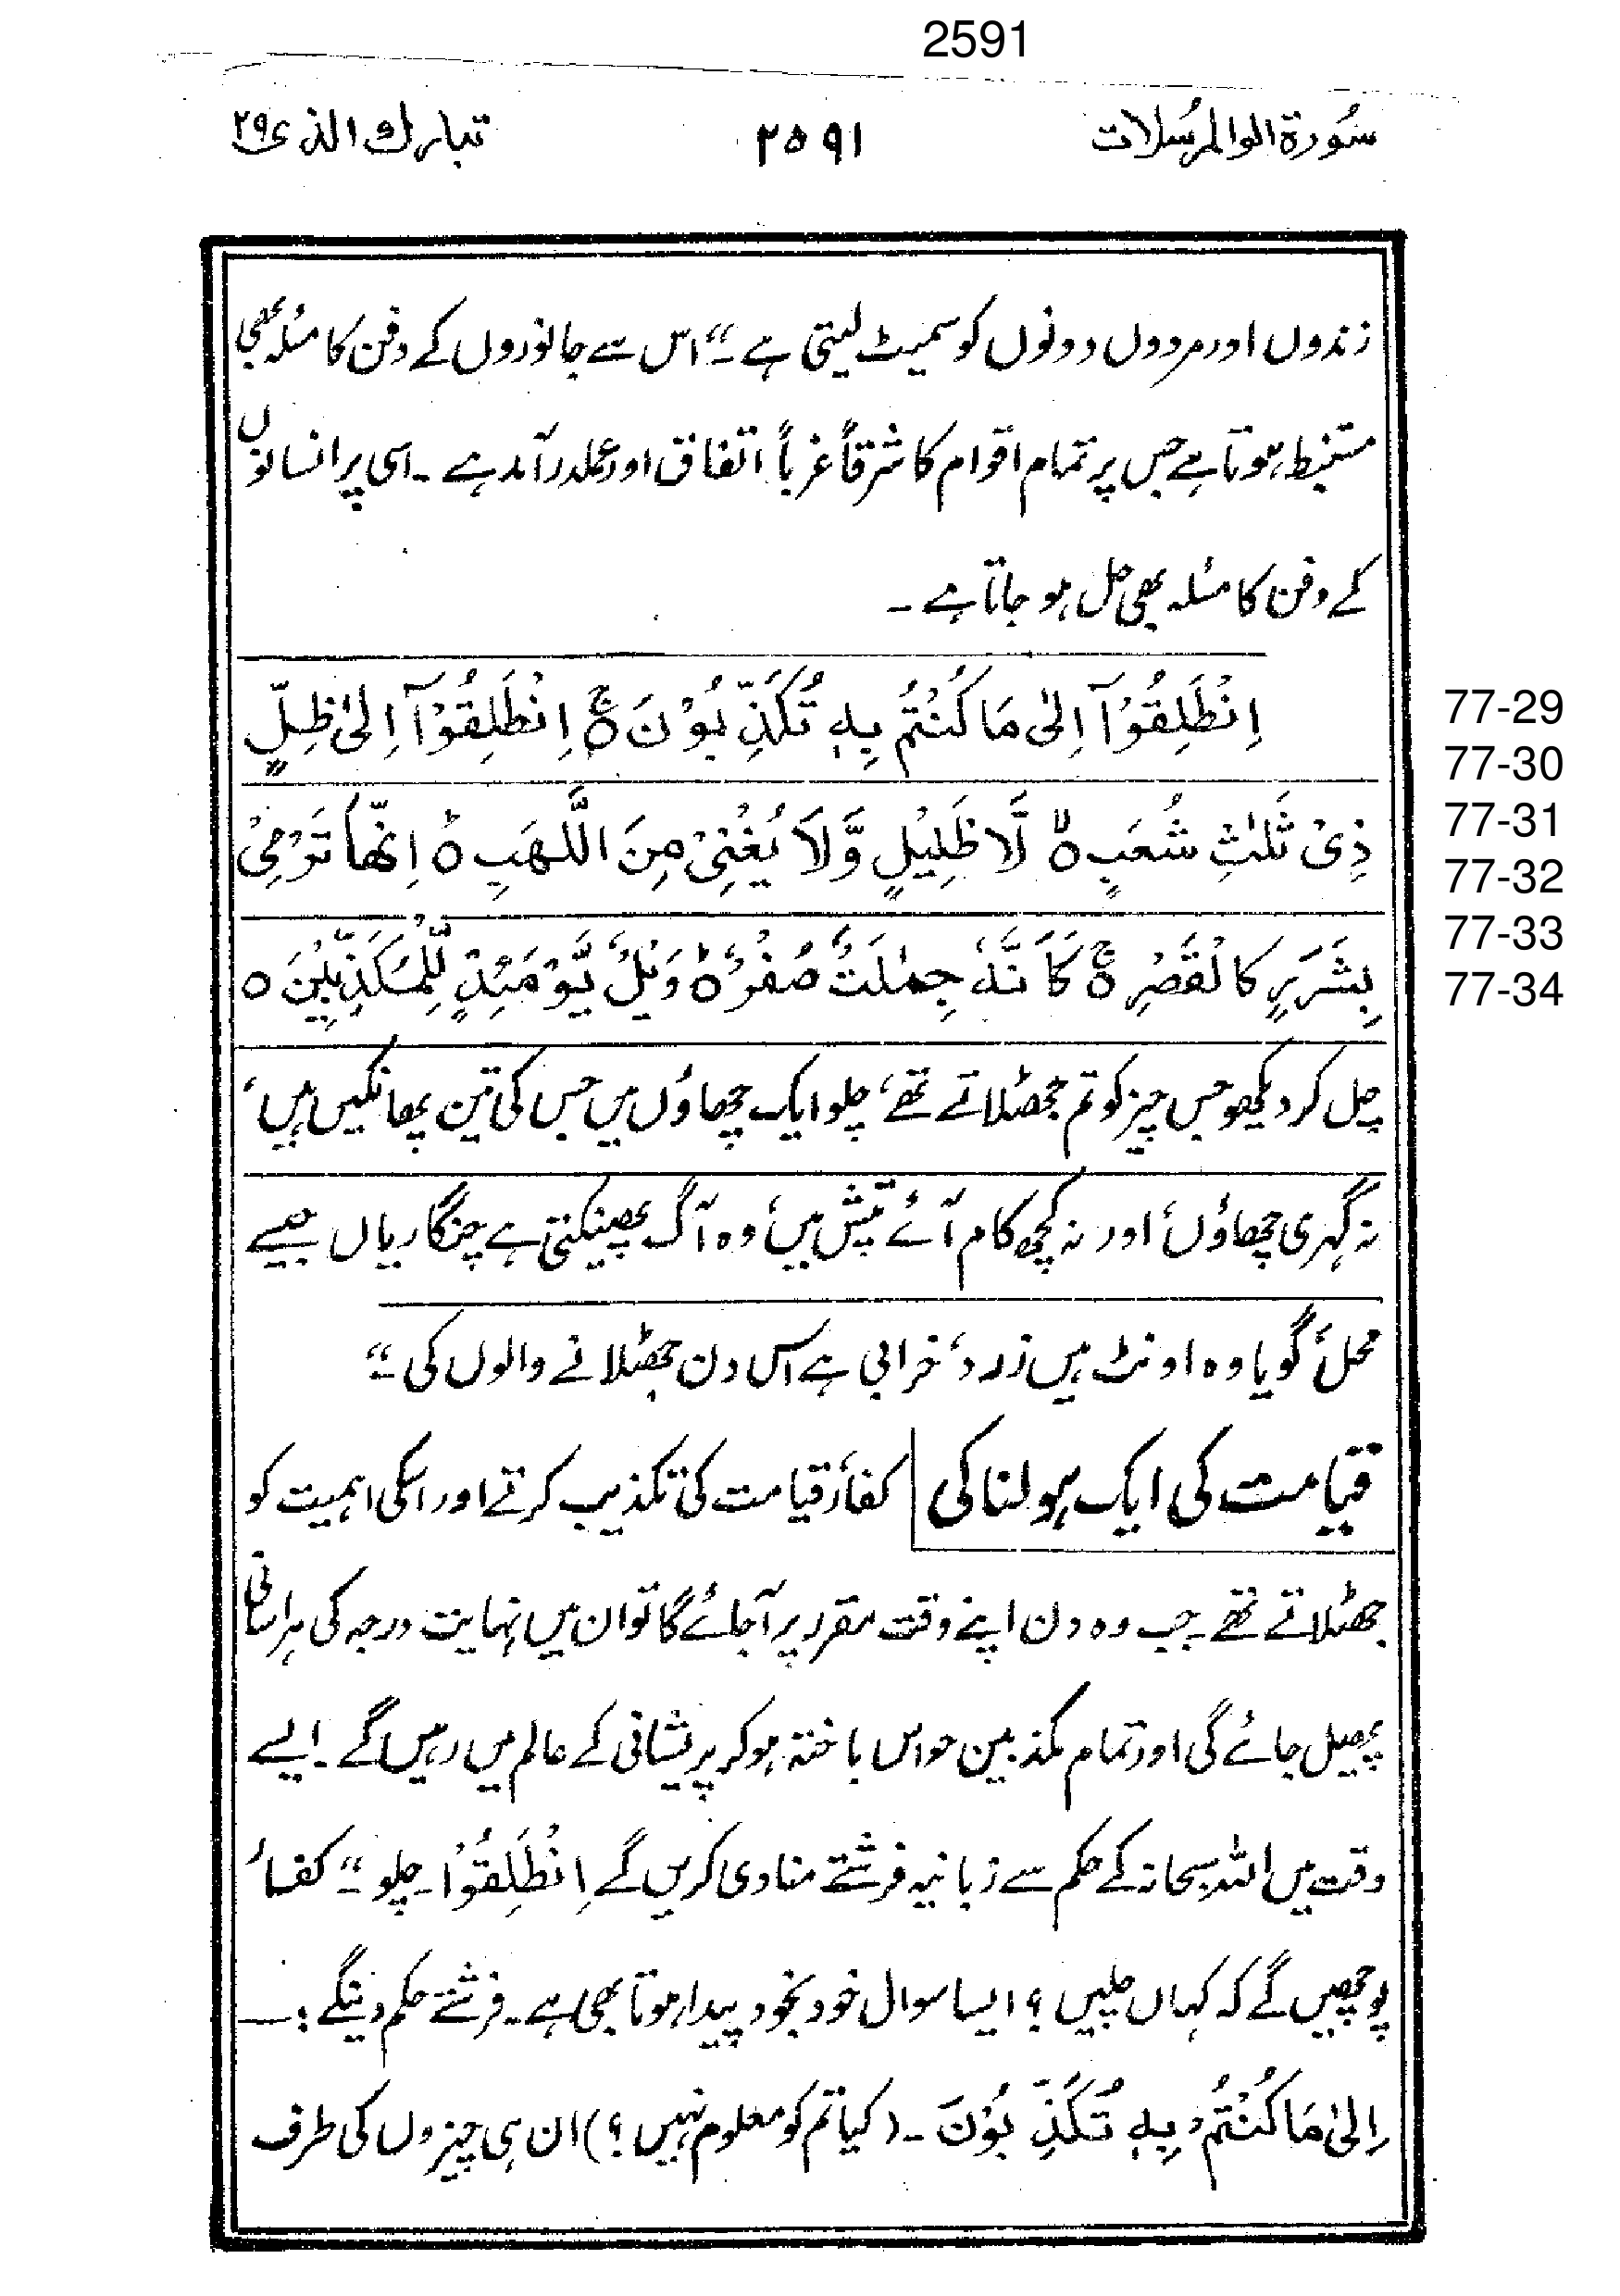 2591
سُورۃ الوالمرسُلات ۲۵۹۱ تبارك الذی ۲۹
زندوں اور مردوں دونوں کو سمیٹ لیتی ہے ۔" اس سے جانوروں کے دفن کا مسئلہ بھی
مستنبط ہوتا ہے جس پر تمام اقوام کا شرقاً غرباً اتفاق اور عملدرآمد ہے ۔ اسی پر انسانوں
کے دفن کا مسئلہ بھی حل ہو جاتا ہے ۔
اِنْطَلِقُوْٓا اِلٰی مَا كُنْتُمْ بِهٖ تُكَذِّبُوْنَ ۚ اِنْطَلِقُوْٓا اِلٰی ظِلٍّ
77-29
77-30
ذِیْ ثَلٰثِ شُعَبٍ ۙ لَّا ظَلِیْلٍ وَّلَا یُغْنِیْ مِنَ اللَّهَبِ ؕ اِنَّهَا تَرْمِیْ
77-31
77-32
بِشَرَرٍ كَالْقَصْرِ ۚ كَاَنَّهٗ جِمٰلَتٌ صُفْرٌ ؕ وَیْلٌ یَّوْمَئِذٍ لِّلْمُكَذِّبِیْنَ ○
77-33
77-34
چل کر دیکھو جس چیز کو تم جھٹلاتے تھے، چلو ایک چھاؤں میں جس کی تین پھانکیں ہیں،
نہ گہری چھاؤں، اور نہ کچھ کام آئے تپش میں، وہ آگ پھینکتی ہے چنگاریاں جیسے
محل، گویا وہ اونٹ ہیں زرد، خرابی ہے اس دن جھٹلانے والوں کی ۔"
قیامت کی ایک ہولناکی کفار قیامت کی تکذیب کرتے اور اسکی اہمیت کو
جھٹلاتے تھے ۔ جب وہ دن اپنے وقت مقرر پر آجائے گا تو ان میں نہایت درجہ کی ہراسانی
پھیل جائے گی اور تمام مکذبین حواس باختہ ہوکر پریشانی کے عالم میں رہیں گے ۔ ایسے
وقت میں اللہ سبحانہ کے حکم سے زبانیہ فرشتے منادی کریں گے اِنْطَلِقُوْا ۔ چلو ۔" کفار
پوچھیں گے کہ کہاں چلیں ؟ ایسا سوال خود بخود پیدا ہوتا بھی ہے ۔ فرشتے حکم دینگے :—
اِلٰی مَا كُنْتُمْ بِهٖ تُكَذِّبُوْنَ ۔ (کیا تم کو معلوم نہیں ؟) ان ہی چیزوں کی طرف